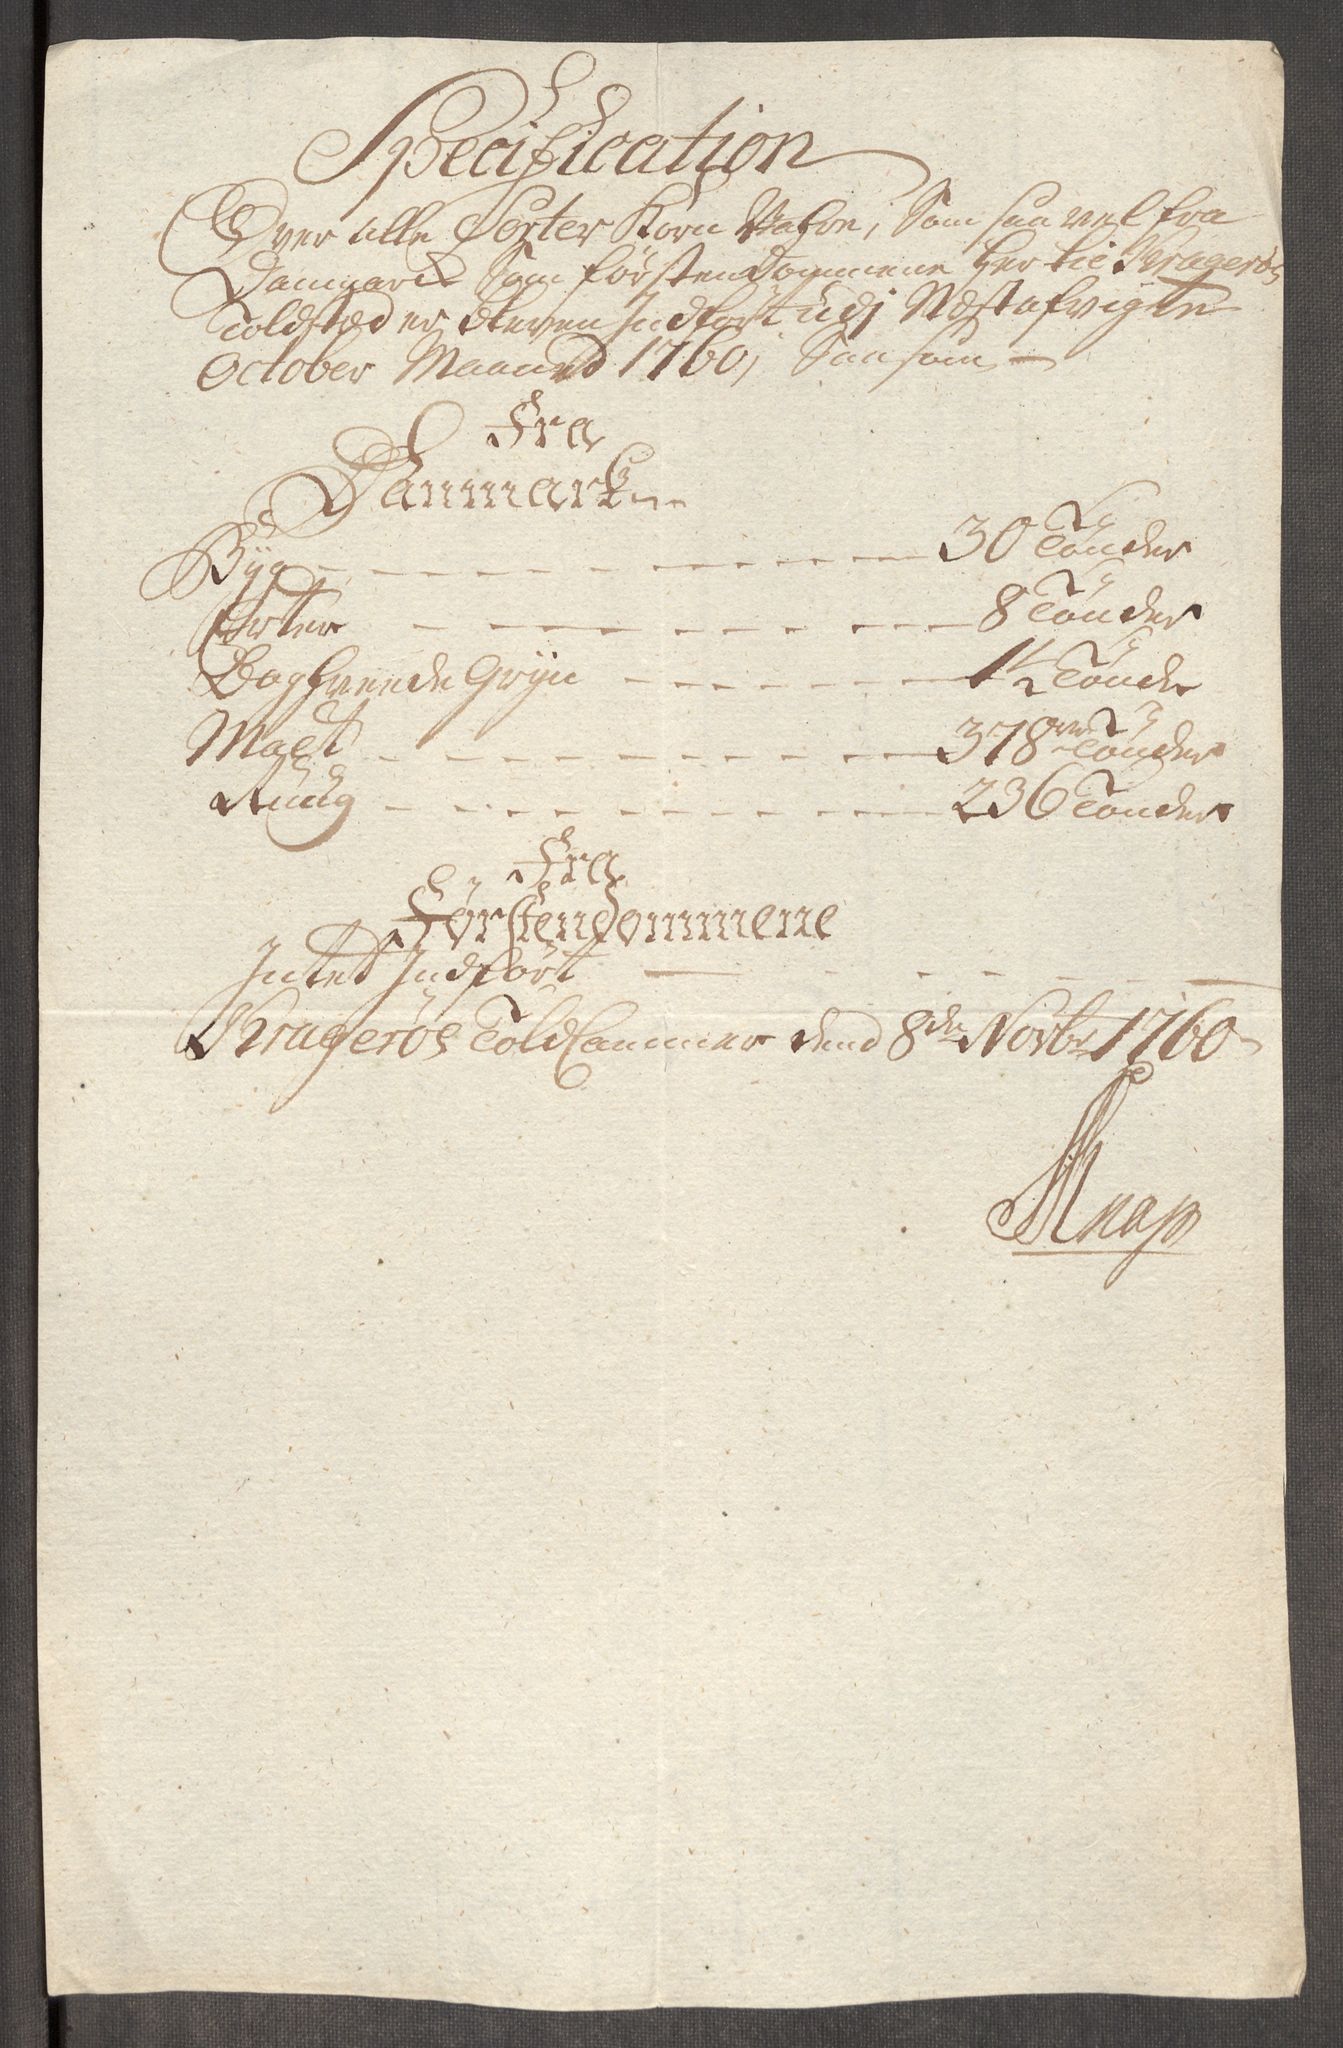 Specification
Over alle Sorter Korn Vahre, Som saa vel fra
Danmark Somførstendommene her til Kragerøes
Toldsted er bleven Indført udj Næstafvigte
October Maaned 1760, Saasom
Fra
Danmark
Byg 30 Tønder
Erter 8 Tønder
Boghveede Gryn 1½ Tønde
Malt 378 Tønder
Ruug 236 Tønder
Fra
Førstendommene
Intet Indført
Kragerøes Told Cammer dend 8de Novbr 1760
Knap